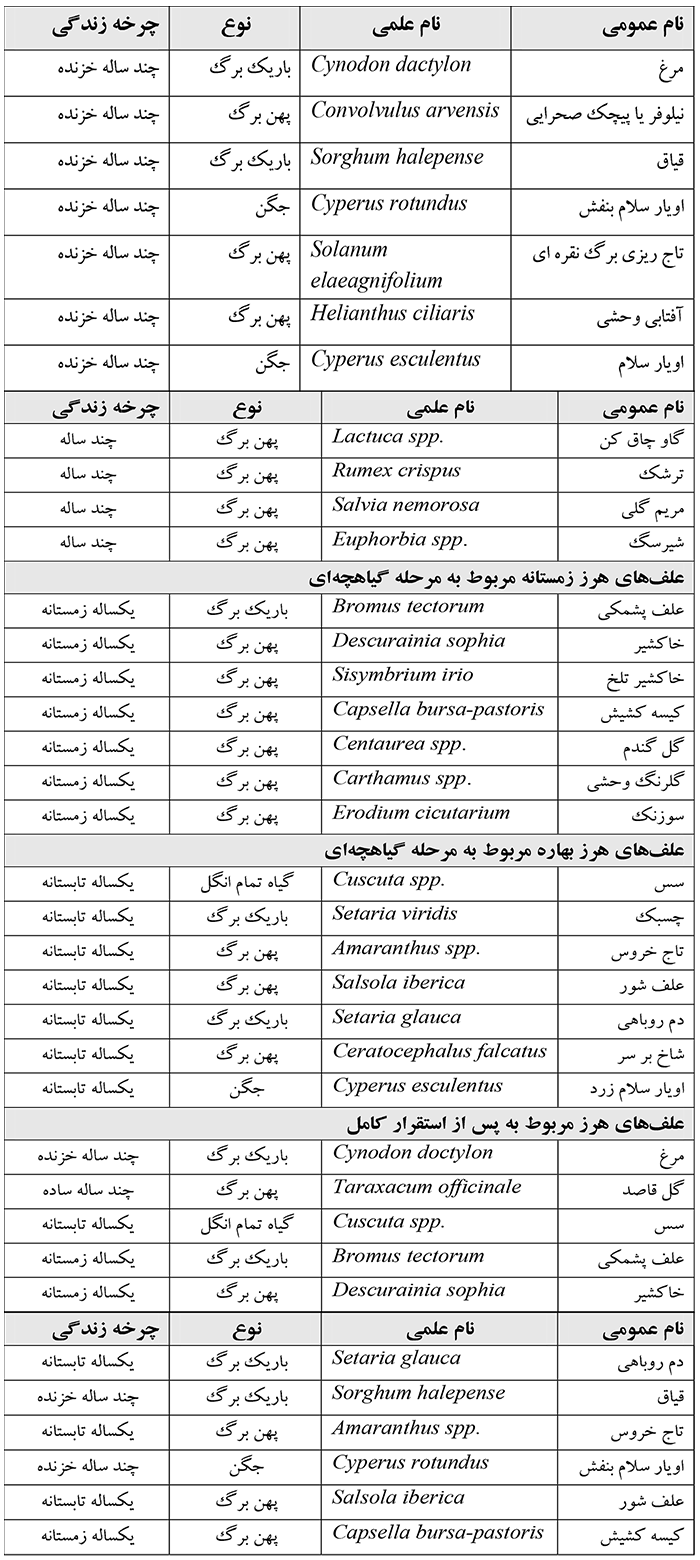 نام عمومی نام علمی نوع چرخه زندگی
مرغ Cynodon dactylon باریک برگ چند ساله خزنده
نیلوفر یا پیچک صحرایی Convolvulus arvensis پهن برگ چند ساله خزنده
قیاق Sorghum halepense باریک برگ چند ساله خزنده
اویار سلام بنفش Cyperus rotundus جگن چند ساله خزنده
تاج ریزی برگ نقره ای Solanum پهن برگ چند ساله خزنده
elaeagnifolium
آفتابی وحشی Helianthus ciliaris پهن برگ چند ساله خزنده
اویار سلام Cyperus esculentus جگن چند ساله خزنده
نام عمومی نام علمی نوع چرخه زندگی
گاو چاق کن Lactuca spp. پهن برگ چند ساله
ترشک Rumex crispus پهن برگ چند ساله
مریم گلی Salvia nemorosa پهن برگ چند ساله
شیرسگ Euphorbia spp. پهن برگ چند ساله
علف‌های هرز زمستانه مربوط به مرحله گیاهچه‌ای
علف پشمکی Bromus tectorum باریک برگ یکساله زمستانه
خاکشیر Descurainia sophia پهن برگ یکساله زمستانه
خاکشیر تلخ Sisymbrium irio پهن برگ یکساله زمستانه
کیسه کشیش Capsella bursa-pastoris پهن برگ یکساله زمستانه
گل گندم Centaurea spp. پهن برگ یکساله زمستانه
گلرنگ وحشی Carthamus spp. پهن برگ یکساله زمستانه
سوزنک Erodium cicutarium پهن برگ یکساله زمستانه
علف‌های هرز بهاره مربوط به مرحله گیاهچه‌ای
سس Cuscuta spp. گیاه تمام انگل یکساله تابستانه
چسبک Setaria viridis باریک برگ یکساله تابستانه
تاج خروس Amaranthus spp. پهن برگ یکساله تابستانه
علف شور Salsola iberica پهن برگ یکساله تابستانه
دم روباهی Setaria glauca باریک برگ یکساله تابستانه
شاخ بر سر Ceratocephalus falcatus پهن برگ یکساله تابستانه
اویار سلام زرد Cyperus esculentus جگن یکساله تابستانه
علف‌های هرز مربوط به پس از استقرار کامل
مرغ Cynodon doctylon باریک برگ چند ساله خزنده
گل قاصد Taraxacum officinale پهن برگ چند ساله ساده
سس Cuscuta spp. گیاه تمام انگل یکساله تابستانه
علف پشمکی Bromus tectorum باریک برگ یکساله زمستانه
خاکشیر Descurainia sophia پهن برگ یکساله زمستانه
نام عمومی نام علمی نوع چرخه زندگی
دم روباهی Setaria glauca باریک برگ یکساله تابستانه
قیاق Sorghum halepense باریک برگ چند ساله خزنده
تاج خروس Amaranthus spp. پهن برگ یکساله تابستانه
اویار سلام بنفش Cyperus rotundus جگن چند ساله خزنده
علف شور Salsola iberica پهن برگ یکساله تابستانه
کیسه کشیش Capsella bursa-pastoris پهن برگ یکساله زمستانه